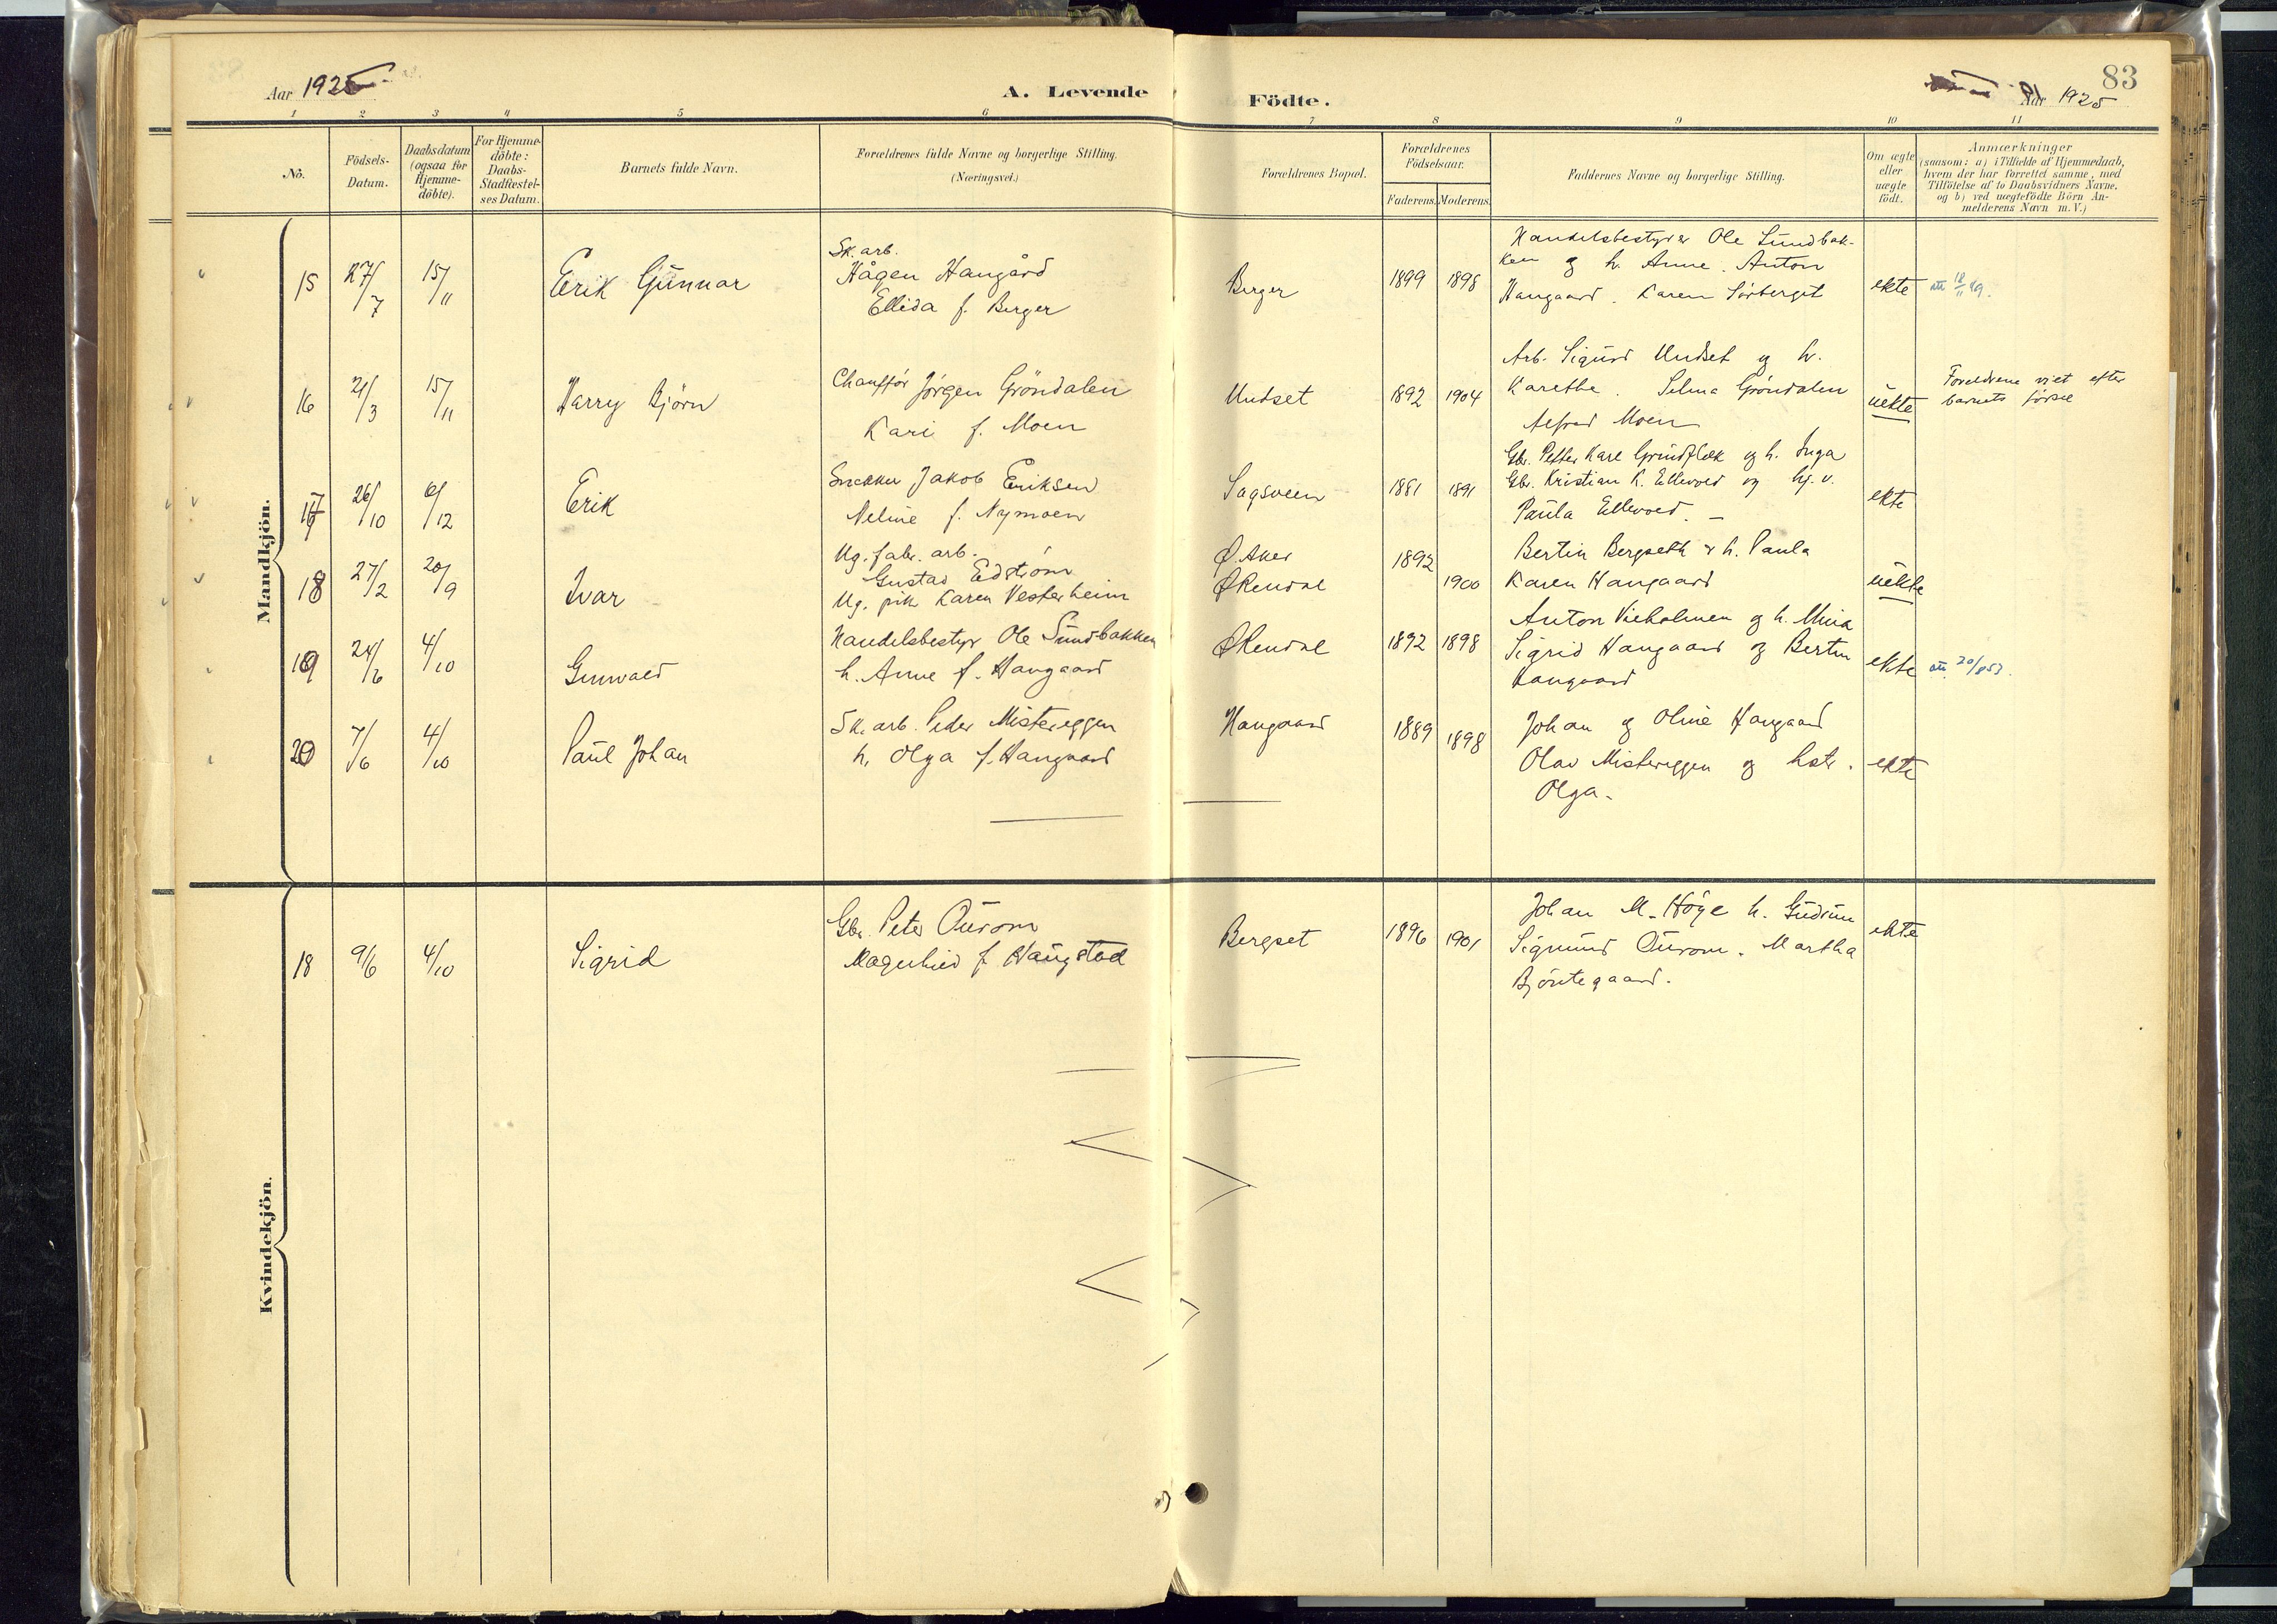 83
Aar 1925
A. Levende
Födte.
Aar 1925
1 2 3 4 5 6 7 8 9 10 11
No.
Födsels-
Datum.
Daabsdatum
(ogsaa for
Hjemme-
döbte).
For Hjemme-
döbte:
Daabs-
Stadfæstel-
ses Datum.
Barnets fulde Navn.
Forældrenes fulde Navne og borgerlige Stilling.
(Næringsvei.)
Forældrenes Bopæl.
Forældrenes
Födselsaar.
Faderens. Moderens.
Faddernes Navne og borgerlige Stilling.
Om ægte
eller
uægte
födt.
Anmærkninger
(saasom: a) i Tilfælde af Hjemmedaab,
hvem der har forrettet samme, med
Tilföielse af to Daabsvidners Navne.
og b) ved uægtefödte Börn An-
melderens Navn m. V.)
Mandkjön.
15 27/7 15/11 Erik Gunnar
Sk. arb.
Hågen Haugård
Ellida f. Berger
Berger 1899 1898
Handelsbestyrer Ole Sundbak-
ken og h. Anne. Anton
Haugaard. Karen Sörberget
ekte att 18/11 49.
16 21/3 15/11 Harry Björn
Chauffør Jørgen Gröndalen
Kari f. Moen
Undset 1892 1904
Arb. Sigurd Undset og h.
Karethe. Selma Gröndalen
Alfred Moen
uekte
Foreldrene viet efter
barnets fødsel
17 26/10 6/12 Erik
Snekker Jakob Eriksen
Neline f. Nymoen
Sagsveen 1881 1891
Gbr. Petter Kare Grindflek og h. Inga
Gbr. Kristian K. Ellevold og hj. v.
Paula Ellevold.
ekte
18 27/2 20/9 Ivar
Ug. fabr. arb.
Gustav Edström
Ug. pik. Karen Vesterheim
Ø. Aker 1892
ØRendal 1900
Bertin Bergseth & h. Paula
Karen Haugaard
uekte
19 24/6 4/10 Gunvald
Handelsbestyr Ole Sundbakken
h. Anne f. Haugaard
ØRendal 1892 1898
Anton Vieholmen og h. Mina
Sigrid Haugaard og Bertin
Haugaard
ekte att. 20/8 53.
20 7/6 4/10 Paul Johan
Sk. arb. Peder Mistereggen
h. Olga f. Haugaard
Haugaard 1889 1898
Johan og Oline Haugaard
Olav Mistereggen og hstr.
Olga.
ekte
Kvindekjön.
18 9/6 4/10 Sigrid
Gbr. Peter Øurom
Magnhild f. Haugstad
Bergset 1896 1901
Johan M. Höye h. Gudrun
Sigmund Øurom. Martha
Björntegaard.
ekte